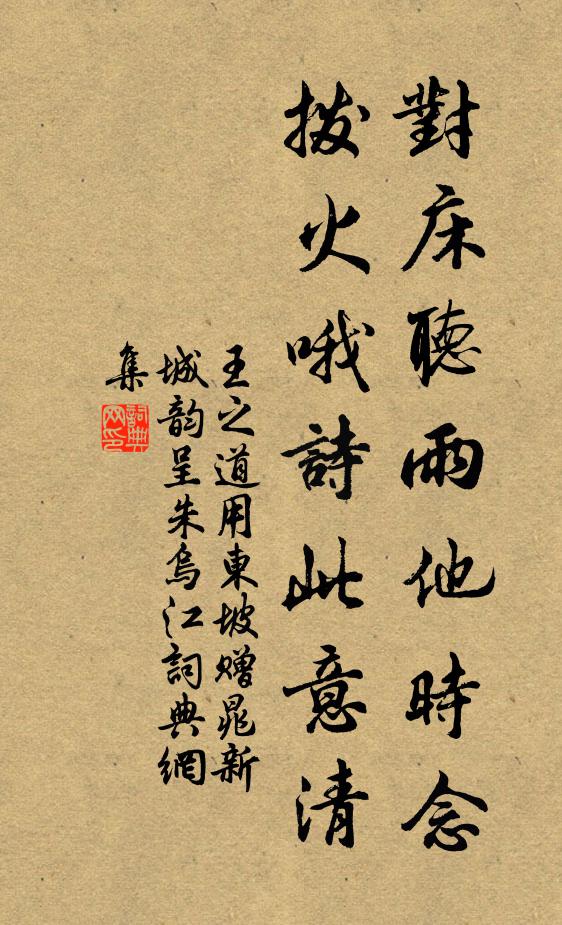 對床聽雨他時念
撥火哦詩此意清
王之道用東坡贈晁新
城韵呈朱烏江詞典網
集
詞典
网印